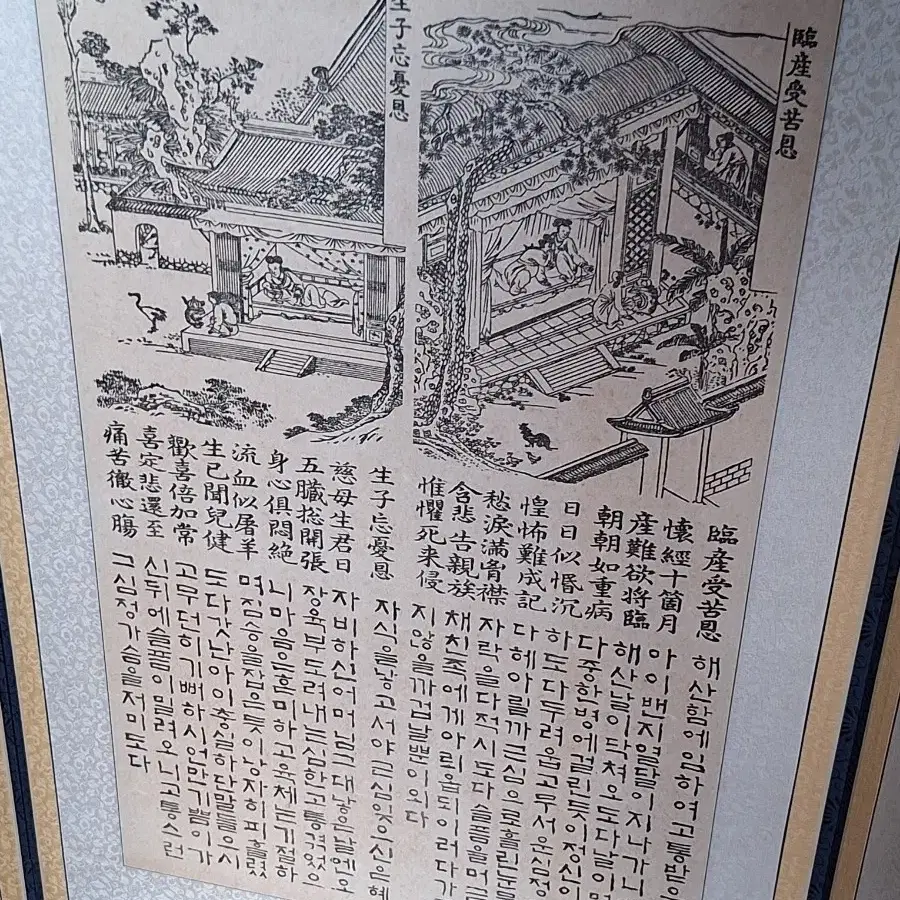 臨産受苦恩
生子忘憂恩
臨産受苦恩
懷經十箇月
産難欲將臨
朝朝如重病
日日似惛沉
惶怖難成記
愁淚滿胷襟
含悲告親族
惟懼死来侵
해산함에임하여고통받으
아이밴지열달이지나가니
해산날이닥쳐오도다날이면
다중한병에걸린듯이정신이
하도다두려웁고무서운심정
다헤아릴까근심으로흘린눈물
자락을다적시도다슬픔을머금
채친족에게아뢰옵되이러다가
지않을까겁날뿐이외다
生子忘憂恩
慈母生君日
五臟捴開張
身心俱悶絶
流血似屠羊
生已聞兒健
歡喜倍加常
喜定悲還至
痛苦徹心膓
자식을낳고서야근심잊으신은혜
자비하신어머님그대낳은날엔오
장육부도려내는심한고통겪었으
니마음은혼미하고육체는기절하
며짐승을잡은듯이낭자히피흘렸
도다갓난아이충실하단말들으시
고무던히기뻐하시언만기쁨이가
신뒤에슬픔이밀려오니고통스런
그심정가슴을저미도다